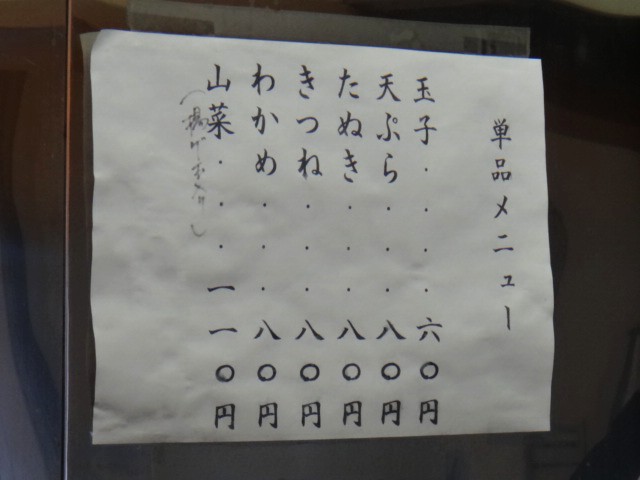 単品メニュー
玉子・・・・六〇円
天ぷら・・・八〇円
たぬき・・・八〇円
きつね・・・八〇円
わかめ・・・八〇円
山菜・・・一一〇円